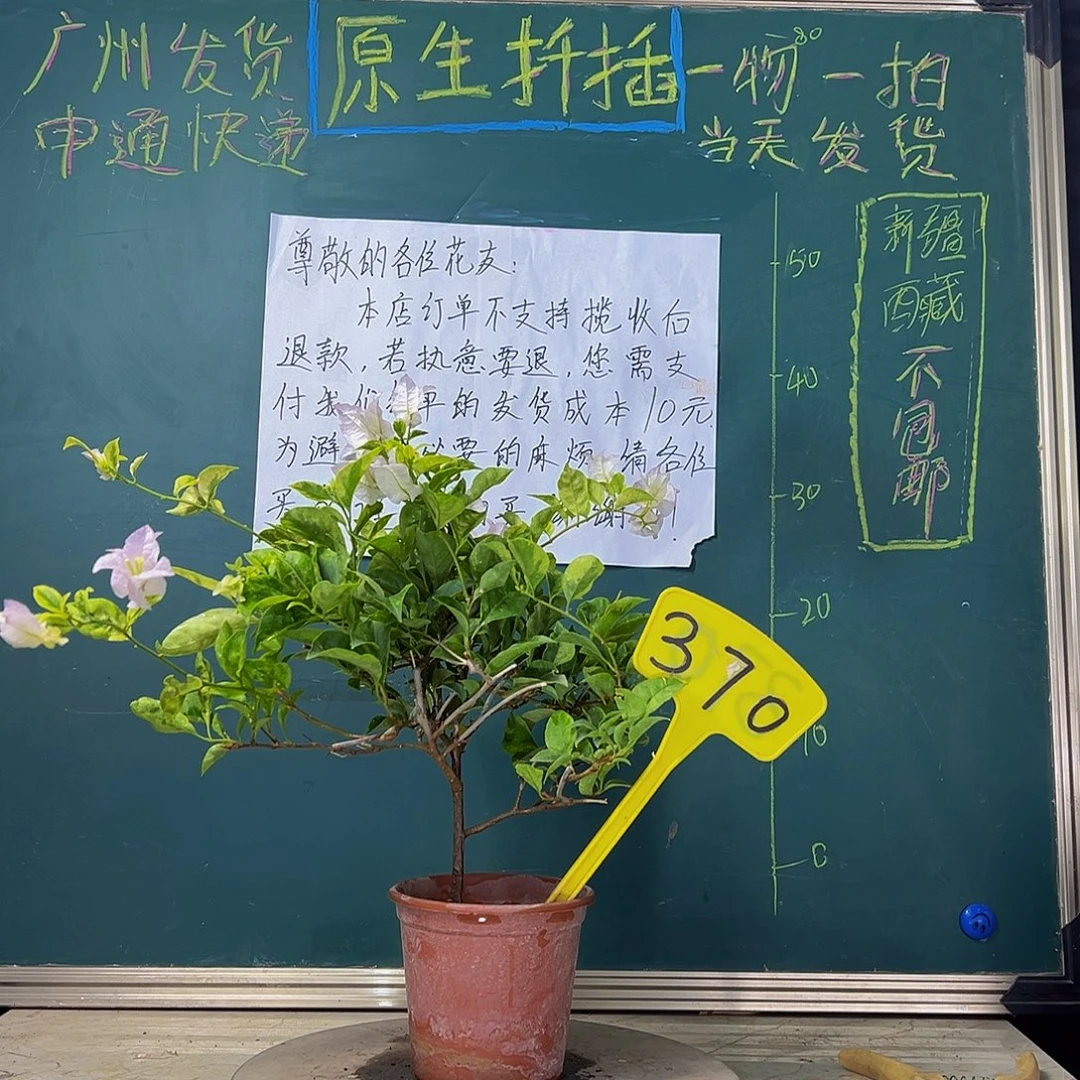 广州发货
申通快递
原生扦插
一物一拍
当天发货
80
新疆
西藏
不包邮
50
40
30
20
10
0
尊敬的各位花友:
本店订单不支持揽收后
退款,若执意要退,您需支
付我们 平的发货成本10元
为避 必要的麻烦 请各位
买
谢!
370